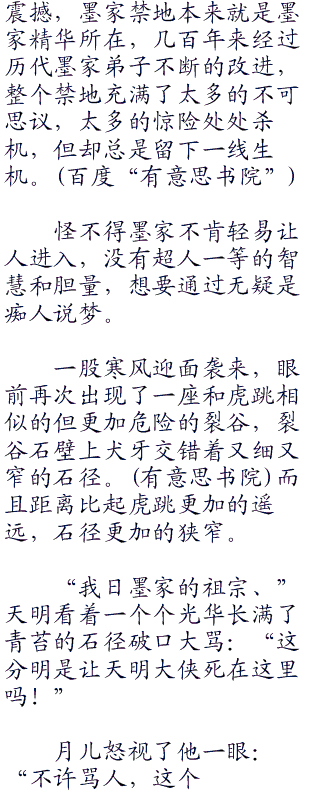 震撼，墨家禁地本来就是墨
家精华所在，几百年来经过
历代墨家弟子不断的改进，
整个禁地充满了太多的不可
思议，太多的惊险处处杀
机，但却总是留下一线生
机。(百度“有意思书院”)
怪不得墨家不肯轻易让
人进入，没有超人一等的智
慧和胆量，想要通过无疑是
痴人说梦。
一股寒风迎面袭来，眼
前再次出现了一座和虎跳相
似的但更加危险的裂谷，裂
谷石壁上犬牙交错着又细又
窄的石径。(有意思书院)而
且距离比起虎跳更加的遥
远，石径更加的狭窄。
“我日墨家的祖宗、”
天明看着一个个光华长满了
青苔的石径破口大骂：“这
分明是让天明大侠死在这里
吗！”
月儿怒视了他一眼：
“不许骂人，这个